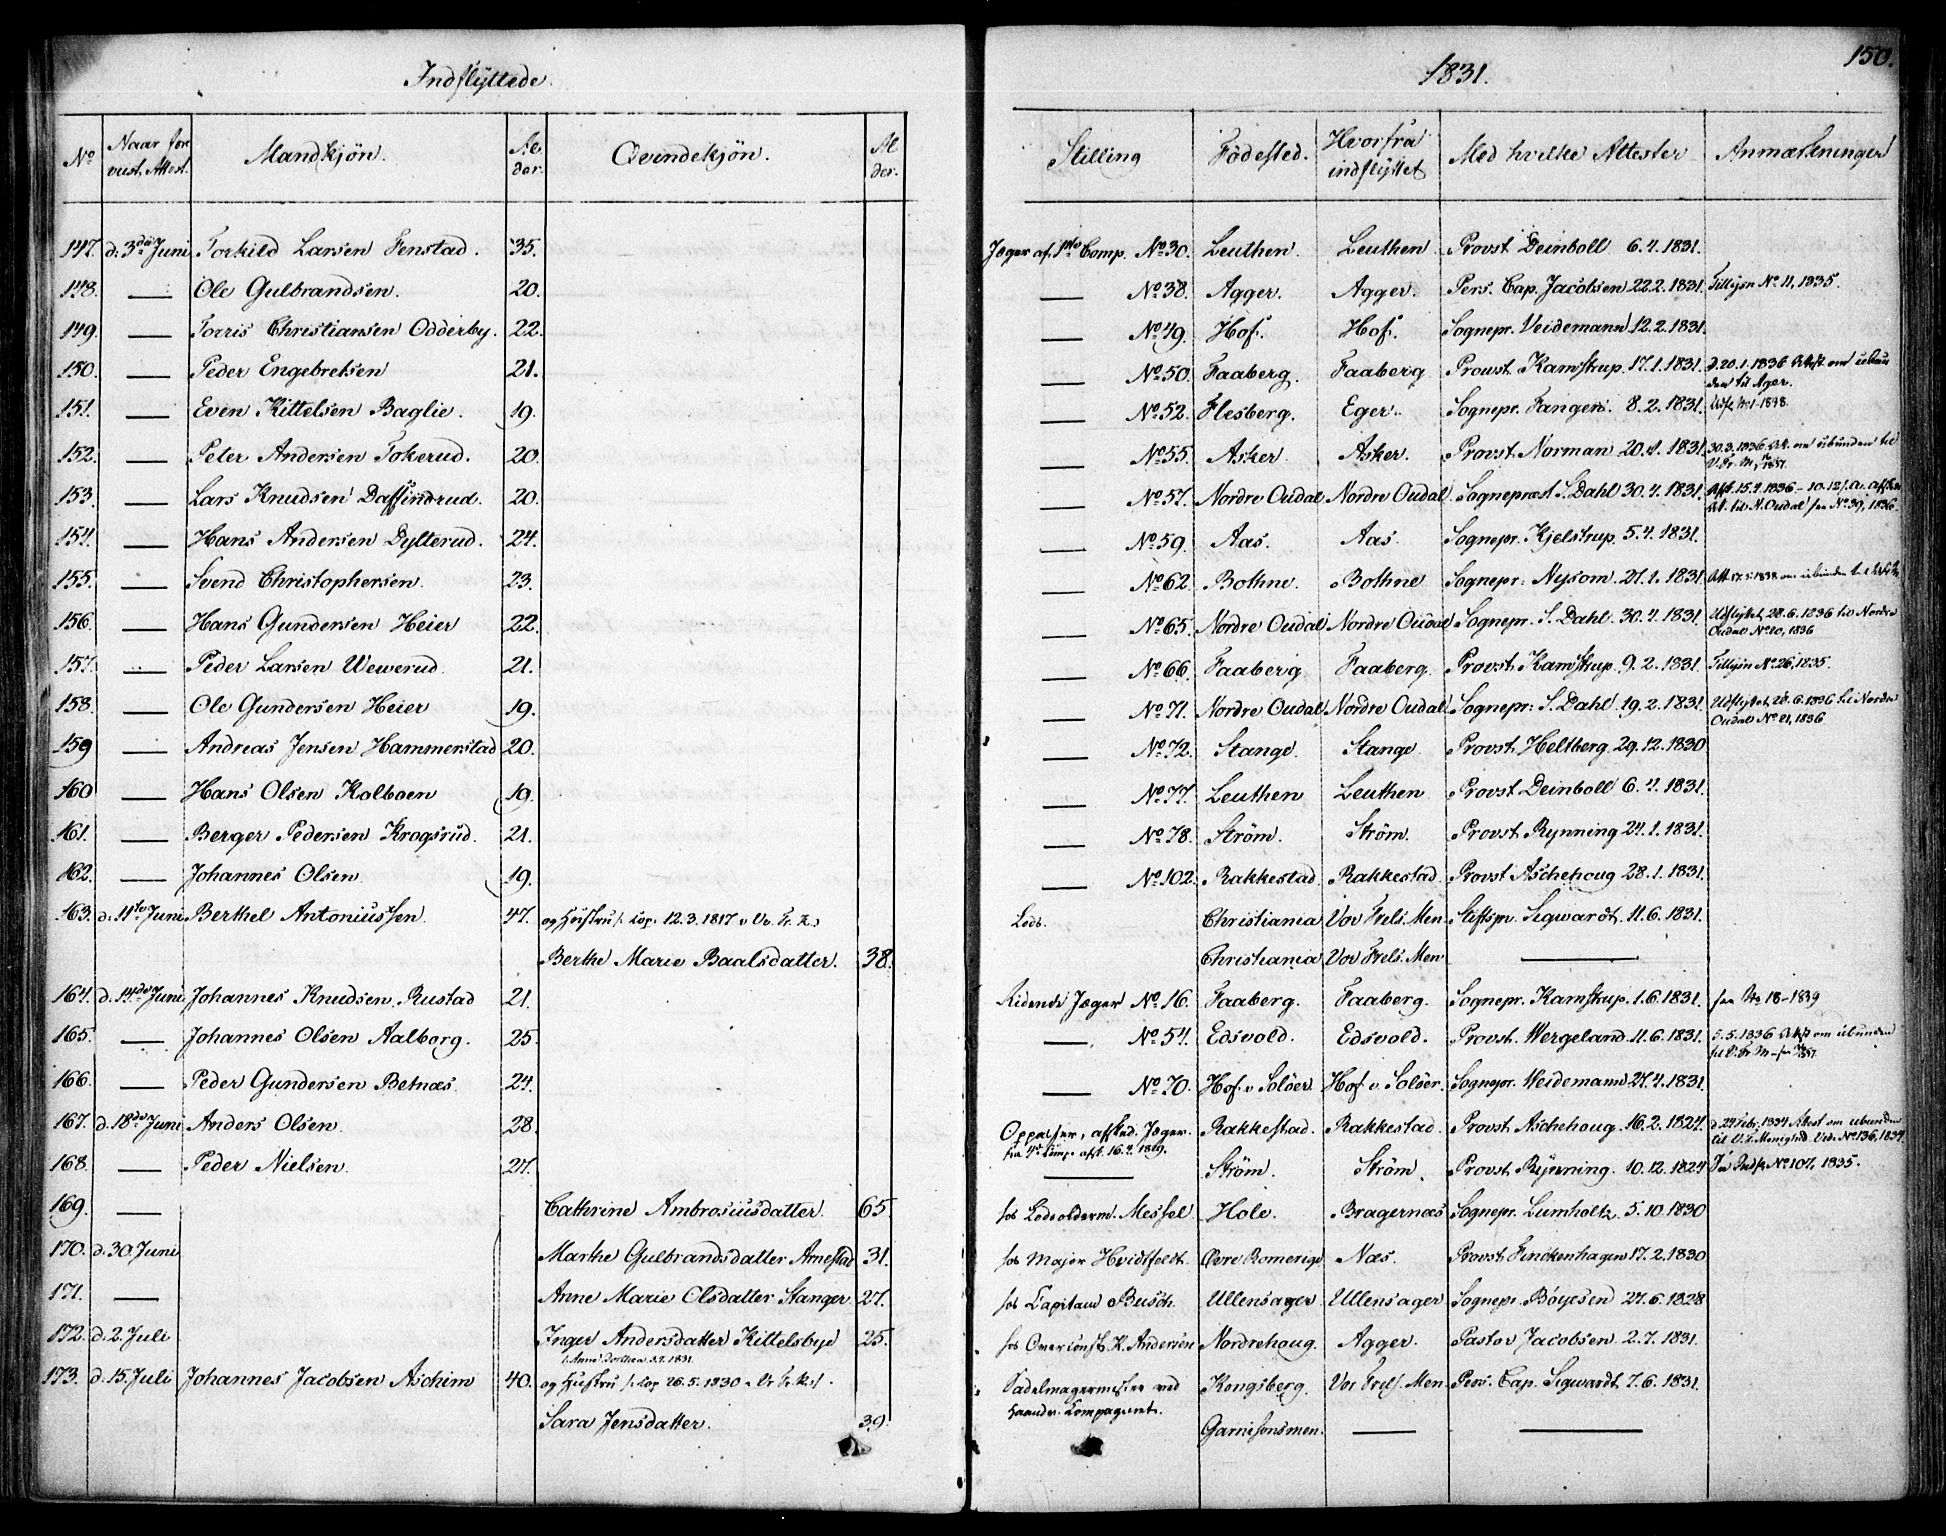 Indflyttede.
1831.
150.
No | Naar fore vist Attest. | Mandkjön. | Al- der. | Qvindekjön. | Al der. | Stilling | Födested. | Hvorfra indflyttet | Med hvilke Attester | Anmærkninger
147. d. 3die Juni Torkild Larsen Fenstad. 35. Jæger af 1ste Comp. No 30. Leuthen. Leuthen. Provst Deinboll 6.4.1831.
148. — Ole Gulbrandsen. 20. — No 38. Agger. Agger. Pers. Cap. Jacobsen 22.2.1831. Tillysn No 11, 1835.
149. — Torris Christiansen Odderby. 22. — No 49. Hof. Hof. Sognepr. Veidemann 12.2.1831.
150. — Peder Engebretsen 21. — No 50. Faaberg. Faaberg Provst Kamstrup. 17.1.1831. d. 20.1.1836 Attest om ubun
den til Ager.
151. — Even Kittelsen Baglie. 19. — No 52. Flesberg. Eger. Sognepr. Fangen. 8.2.1831. Udfl. No 1-1838.
152. — Peter Andersen Tokerud. 20. — No 55. Asker. Asker. Provst Norman 20.4.1831. 30.3.1836 Att. om ubunden til
V. Fr. M.
153. — Lars Knudsen Daffindrud. 20. — No 57. Nordre Oudal Nordre Oudal Sogneprest S. Dahl 30.4.1831. Afst. 15.4.1836 - 10.12
Att. til N. Oudal see No 39, 1836.
154. — Hans Andersen Dytterud. 24. — No 59. Aas. Aas. Sognepr. Kjelstrup. 5.4.1831.
155. — Svend Christophersen. 23. — No 62. Bothne. Bothne Sognepr. Nysom. 27.1.1831. Att. 17.5.1838 om ubunden til
156. — Hans Gundersen Heier 22. — No 65. Nordre Oudal Nordre Oudal Sognepr. S. Dahl. 30.4.1831. Udflyttet 28.6.1836 til Nordre
Oudal No 20, 1836
157. — Peder Larsen Wewerud. 21. — No 66. Faaberg Faaberg. Provst Kamstrup. 9.2.1831. Tillysn No 26, 1835.
158. — Ole Gundersen Heier 19. — No 71. Nordre Oudal Nordre Oudal Sognepr. S. Dahl 19.2.1831. Udflyttet 28.6.1836 til Nordre
Oudal No 21, 1836
159 — Andreas Jensen Hammerstad 20. — No 72. Stange Stange Provst Heltberg. 29.12.1830
160 — Hans Olsen Kolboen 19. — No 77. Leuthen Leuthen Provst Deinboll 6.4.1831.
161. — Berger Pedersen Krogsrud. 21. — No 78. Ström. Ström. Provst Rynning 24.1.1831.
162. — Johannes Olsen. 19. — No 102. Rakkestad. Rakkestad. Provst Aschehoug 28.1.1831.
163. d. 11te Juni Berthel Antoniussen. 47. og Hustru /: Cop. 12.3.1817 i Vr. Fr. K. :/ Lods. Christiania Vor Frels. Men. Stiftspr. Sigwardt. 11.6.1831.
Berthe Marie Baalsdatter. 38. Christiania Vor Frels. Men —
164. d. 14de Juni Johannes Knudsen Rustad 21. Ridende Jæger No 16. Faaberg. Faaberg. Sognepr. Kamstrup. 1.6.1831. see No 18-1839
165. — Johannes Olsen Aalborg. 25. — No 54. Edsvold. Edsvold. Provst Wergeland. 11.6.1831. 5.5.1836 Attest om ubunden
til V. Fr. M
166. — Peder Gundersen Betnæs. 24. — No 70. Hof i Solöer. Hof i Solöer. Sognepr. Weidemann 27.4.1831.
167. d. 18de Juni Anders Olsen. 28. Oppasser, afsked. Jæger. Rakkestad. Rakkestad. Provst Aschehoug. 16.2.1824. d. 24 Febr. 1834 Attest om ubunden
fra 4de Comp. afsk. 16.4.1829. til V. F. Menighed. Vid. No 136, 1834.
168. — Peder Nielsen. 27. — Ström. Ström. Provst Rynning. 10.12.1824 No 107, 1835.
169. — Cathrine Ambrosiusdatter. 65. hos Lodsolderm. Messel Hole. Bragernæs Sognepr. Lumholtz. 5.10.1830
170. d. 30. Juni Marthe Gulbrandsdatter Arnestad 31. hos Major Hvidtfeldt. Övre Romerige Næs. Provst Finckenhagen 17.2.1830
171. — Anne Marie Olsdatter Stanger 27. hos Capitain Busch. Ullensager Ullensager Sognepr. Böyesen 27.6.1828
172. d. 2. Juli Inger Andersdatter Kittelsbye 25. hos K. Andersen Nordrehoug. Agger. Pastor Jacobsen 2.7.1831.
173. d. 15. Juli Johannes Jacobsen Aschim 40. og Hustru /: Cop 26.5.1830 i Vr. Fr. K :/. Sadelmagermester ved Kongsberg. Vor Frels. Men. Pers. Cap. Sigwardt. 7.6.1831.
Sara Jensdatter. 39. haandv. Compagniet. Garnisonsmen. — —